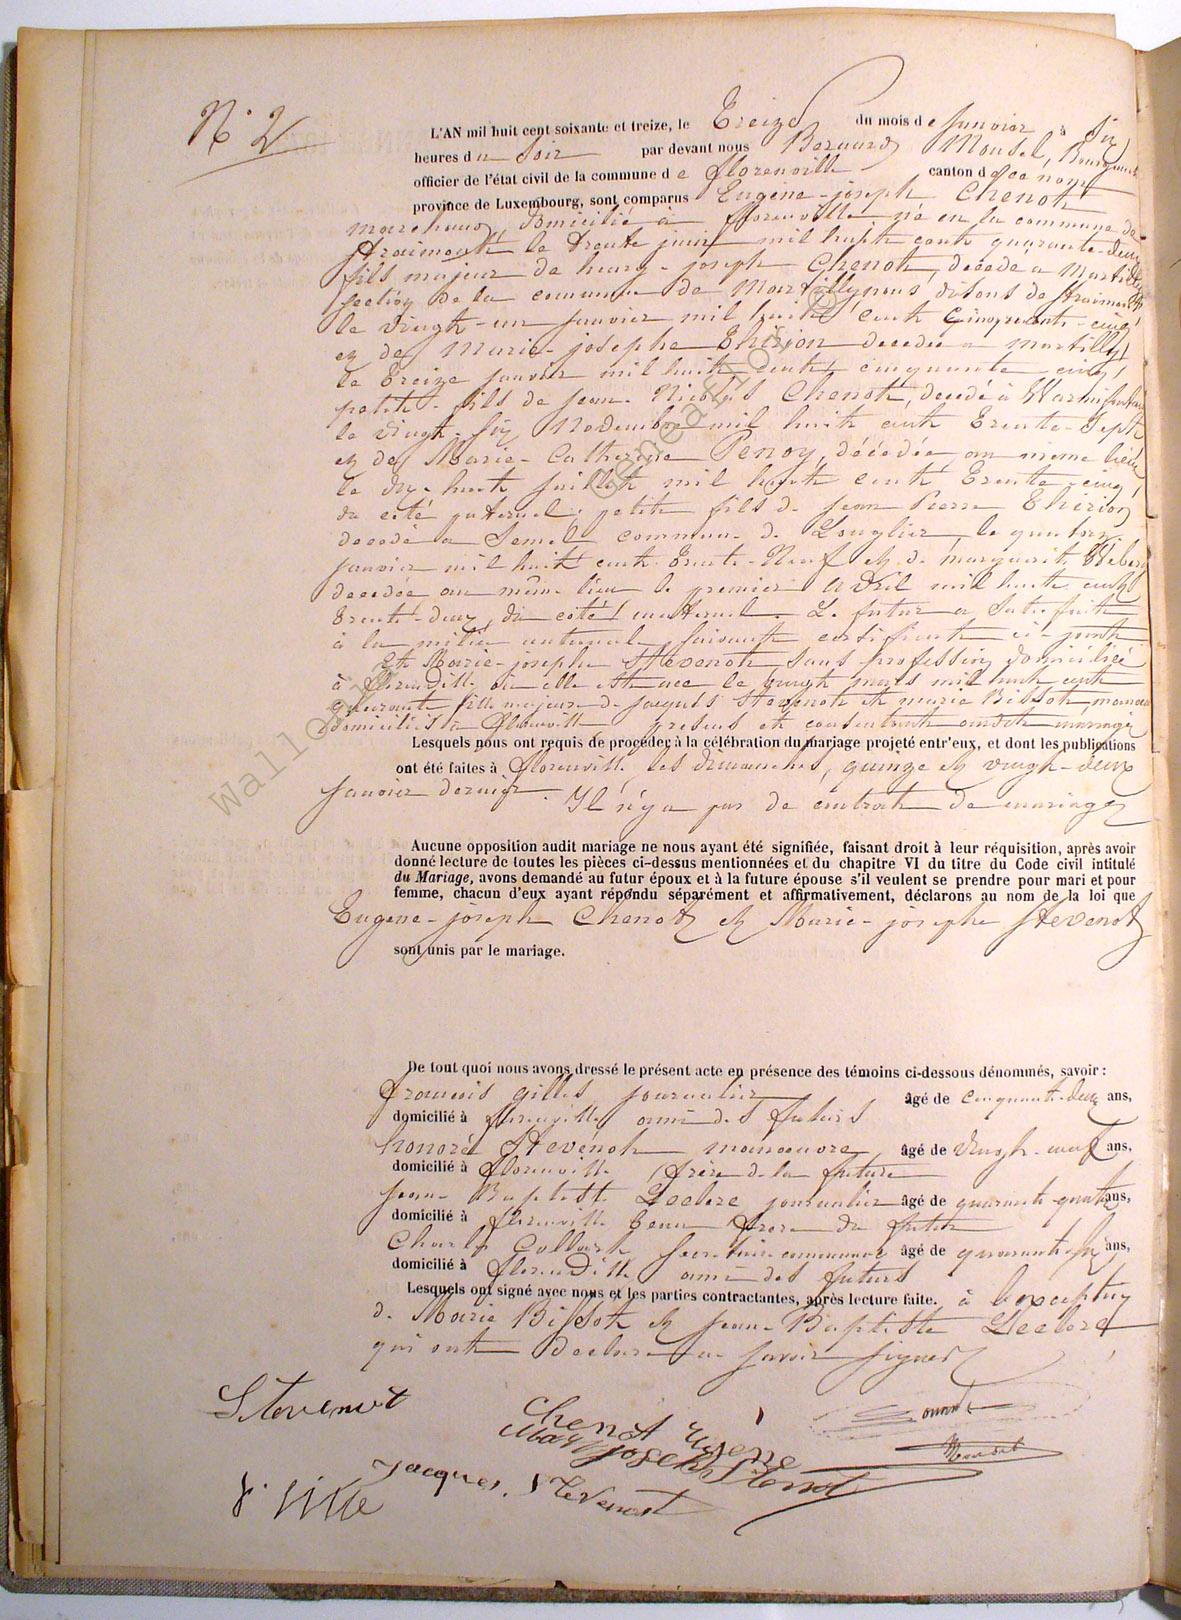 N° 2
L'AN mil huit cent soixante et treize, le Treize du mois de Janvier à Six
heures du Soir par devant nous Bernard Mousel, Bourgmestre
officier de l'état civil de la commune de florenville canton de ce nom
province de Luxembourg, sont comparus Eugène-joseph Chenot
marechaud, domicilié à florenville né en la commune de
Straimont le trente juin mil huit cent quarante-deux
fils majeur de henry-joseph Chenot, décédé a Martilly
section de la commune de Martilly nous disons de Straimont
le vingt-un janvier mil huit cent cinquante-cinq
et de Marie-josephe Thirion decedée a martilly
le Treize janvier mil huit cent cinquante cinq,
petit-fils de jean-Nicolas Chenot, décédé à Warmifontaine
le vingt-six Novembre mil huit cent Trente-Sept
et de Marie-Catherine Penoy, décédée au même lieu
le dix-huit juillet mil huit cent Trente-cinq,
du coté paternel; petit fils de Jean Pierre Thirion
décédé a Semel commune de Longlier, le quatorze
janvier mil huit cent trente-Neuf et de marguerite Weber
decedée au même lieu le premier avril mil huit cent
trente-deux, du côté maternel. Le futur a satisfait
à la milice nationale suivant certificat ci-joint
Et Marie-josephe Stevenot, sans profession domiciliée
à florenville où elle est née le vingt mars mil huit cent
quarante fille majeure de jacques Stevenot et marie Bissot, manœuvres
domiciliés à florenville présens et consentant audit mariage
Lesquels nous ont requis de procéder à la célébration du mariage projeté entr'eux, et dont les publications
ont été faites à florenville les dimanches, quinze et vingt-deux
janvier dernier. Il n'ya pas de contrat de mariage
Aucune opposition audit mariage ne nous ayant été signifiée, faisant droit à leur réquisition, après avoir
donné lecture de toutes les pièces ci-dessus mentionnées et du chapitre VI du titre du Code civil intitulé
du Mariage, avons demandé au futur époux et à la future épouse s'il veulent se prendre pour mari et pour
femme, chacun d'eux ayant répondu séparément et affirmativement, déclarons au nom de la loi que
Eugène-joseph Chenot et Marie-josephe Stevenot
sont unis par le mariage.
De tout quoi nous avons dressé le présent acte en présence des témoins ci-dessous dénommés, savoir :
françois gilles journalier âgé de cinquante-deux ans,
domicilié à florenville ami des futurs
honoré Stevénot manoeuvre, âgé de vingt-neuf ans,
domicilié à florenville frère de la future
Jean-Baptiste Leclere journalier âgé de quarante-quatre ans,
domicilié à florenville beau frere du futur
Charles Collard secrétaire communal âgé de quarante-six ans,
domicilié à florenville ami des futurs
Lesquels ont signé avec nous et les parties contractantes, après lecture faite. à l'exception
de Marie Bissot et jean-Baptiste Leclere
qui ont declaré ne savoir signer
Stevenot
Chenot Eugène
Mousel
Jacques Stevenot
Wallonie
GeneaFlor ©